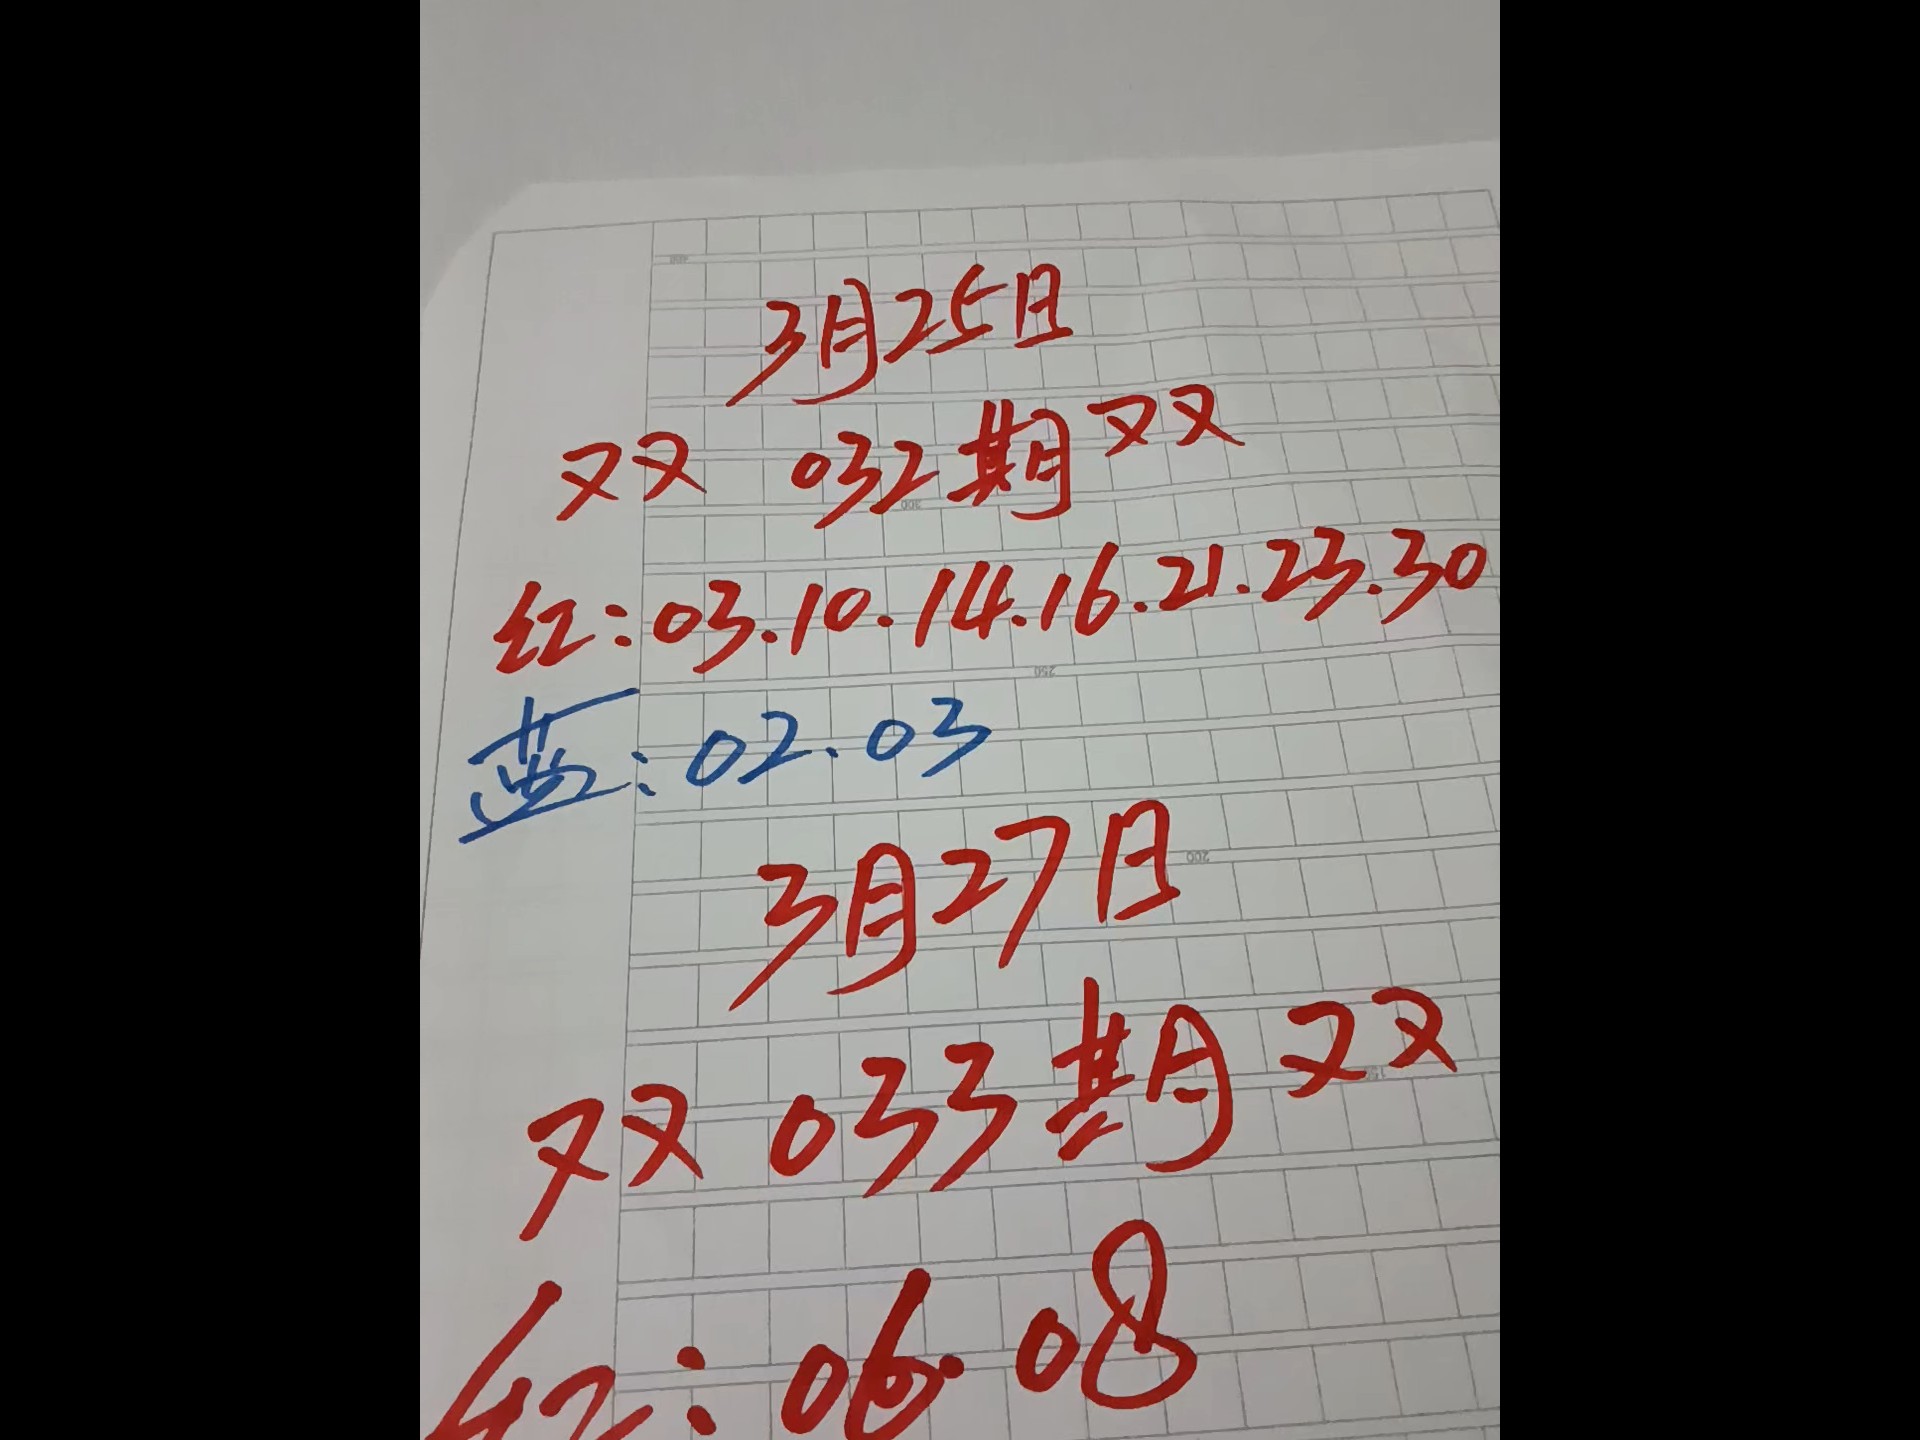 3月25日
双 032期 双
红:03.10.14.16.21.23.30
蓝:02.03
3月27日
双 033期 双
红:06.08